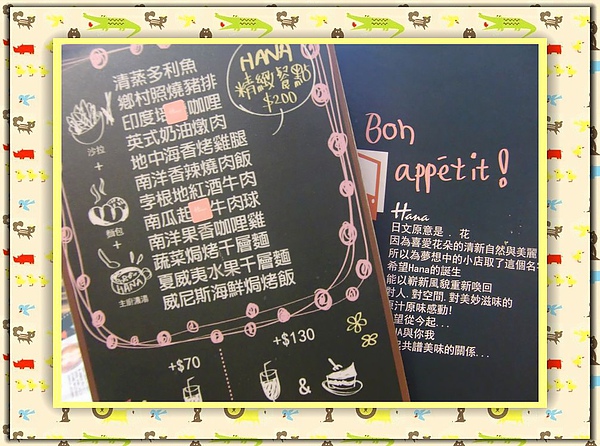 HANA
精緻餐點
$200
清蒸多利魚
鄉村照燒豬排
印度 咖哩
英式奶油燉肉
地中海香烤雞腿
南洋香辣燒肉飯
孛根地紅酒牛肉
南瓜 牛肉球
南洋果香咖哩雞
蔬菜焗烤千層麵
夏威夷水果千層麵
威尼斯海鮮焗烤飯
沙拉
+
麵包
+
HANA
主廚濃湯
+$70
+$130
&
Bon
appétit!
Hana
日文原意是．花
因為喜愛花朵的清新自然與美麗
所以為夢想中的小店取了這個名
希望Hana的誕生
能以嶄新風貌重新喚回
對人.對空間.對美妙滋味的
原汁原味感動!
望從今起...
NA與你我
共譜美味的關係...